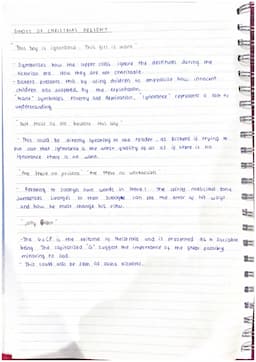 GHOST OF CHRISTMAS PRESENT
"This boy is ignorance. This girl is want"
- Symbolises how the upper class ignore the destitute during the
Victorian era. How they are not charitable.
- Dickens presents this by using children to emphasise how innocent
children are affected by the exploitation.
"Want" symbolises poverty and deprivation, "ignorance" represents a lack of
understanding.
"but most of all beware this boy"
- This could be directly speaking to the reader, as Dickens is trying to
put that ignorance is the worst quality of all as if there is no
ignorance there is no want.
"Are there no prisons," "Are there no workhouses"
- Referring to Scrooge's own words in stave 1. The
Scrooge to that Scrooge can see the error of his ways
and how he must change his view.
"jolly Giant"
- The G.O.C.P is the welcome to and is presented as a sociable
being. The capitalised "G" suggest the importance of the ghost possibly
mirroring to God.
- This could also be seen as being